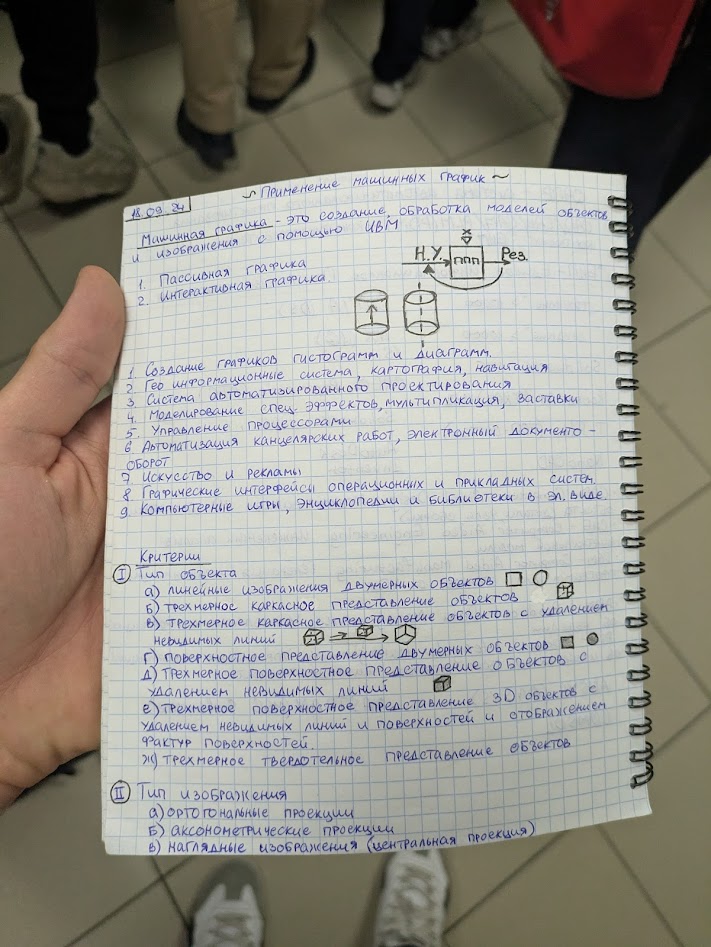 ~ Применение машинных график ~
18.09.24
Машинная графика - это создание, обработка моделей объектов
и изображения с помощью ИВМ
1. Пассивная графика
2. Интерактивная графика.
x
Н.У. ППП Рез.
1 Создание графиков гистограмм и диаграмм.
2 Гео информационные система, картография, навигация
3 Система автоматизированного проектирования
4 Моделирование спец. эффектов, мультипликация, заставки
5. Управление процессорами
6 Автоматизация канцелярских работ, электронный документо -
оборот
7 Искусство и рекламы
8 Графические интерфейсы операционных и прикладных систем.
9 Компьютерные игры, энциклопедии и библиотеки в эл. виде.
Критерии
I Тип объекта
а) линейные изображения двумерных объектов
б) трехмерное каркасное представление объектов
в) трехмерное каркасное представление объектов с удалением
невидимых линий
г) поверхностное представление двумерных объектов
д) Трехмерное поверхностное представление объектов с
удалением невидимых линий
е) трехмерное поверхностное представление 3D объектов с
удалением невидимых линий и поверхностей и отображением
фактур поверхностей.
ж) трехмерное твердотельное представление объектов
II Тип изображения
а) ортогональные проекции
б) аксонометрические проекции
в) наглядные изображения (центральная проекция)